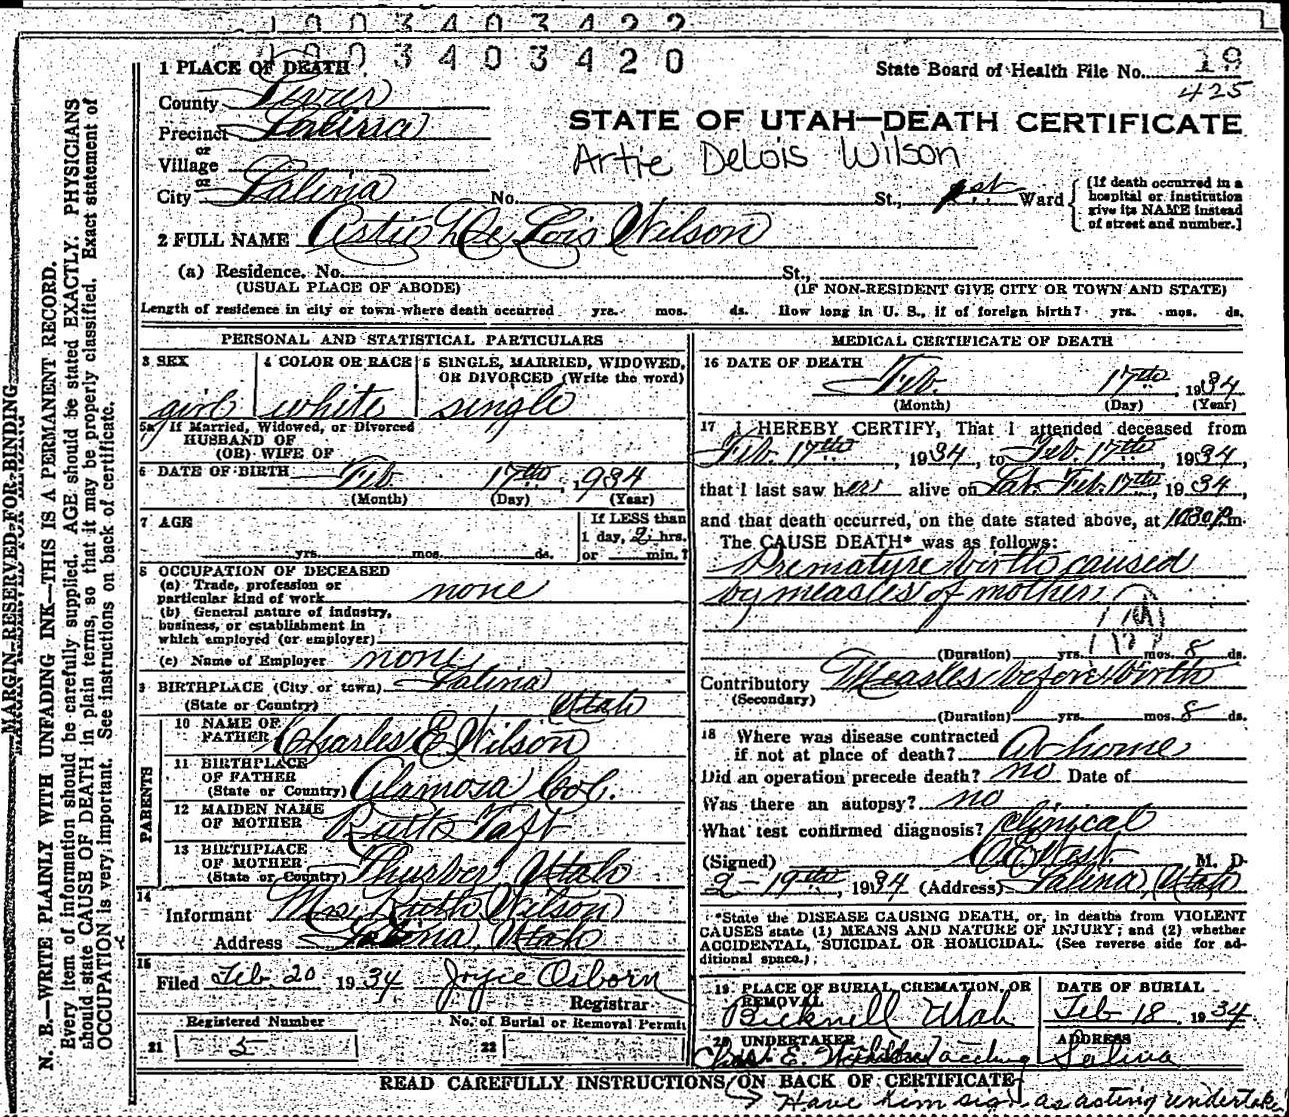 1003403422
1003403420
1 PLACE OF DEATH
State Board of Health File No. 19
425
County Sevier
Precinct Salina
STATE OF UTAH—DEATH CERTIFICATE
or
Village
Artie DeLois Wilson
or
City Salina No. St., 1st Ward
[If death occurred in a hospital or institution give its NAME instead of street and number.]
2 FULL NAME Artie De Lois Wilson
(a) Residence. No. St.,
(USUAL PLACE OF ABODE) (IF NON-RESIDENT GIVE CITY OR TOWN AND STATE)
Length of residence in city or town where death occurred yrs. mos. ds. How long in U. S., if of foreign birth? yrs. mos. ds.
PERSONAL AND STATISTICAL PARTICULARS
3 SEX 4 COLOR OR RACE 5 SINGLE, MARRIED, WIDOWED,
OR DIVORCED (Write the word)
girl white single
5a If Married, Widowed, or Divorced
HUSBAND OF
(OR) WIFE OF
6 DATE OF BIRTH Feb 17th, 1934
(Month) (Day) (Year)
7 AGE If LESS than
1 day, 2 hrs.
yrs. mos. ds. or min.?
8 OCCUPATION OF DECEASED
(a) Trade, profession or
particular kind of work none
(b) General nature of industry,
business, or establishment in
which employed (or employer)
(c) Name of Employer none
9 BIRTHPLACE (City or town) Salina
(State or Country) Utah
PARENTS
10 NAME OF
FATHER Charles E Wilson
11 BIRTHPLACE
OF FATHER
(State or Country) Alamosa Col.
12 MAIDEN NAME
OF MOTHER Ruth Taft
13 BIRTHPLACE
OF MOTHER
(State or Country) Thurber, Utah
14
Informant Mrs. Ruth Wilson
Address Salina, Utah
15
Filed Feb. 20 1934 Joyce Osborn
Registrar
Registered Number No. of Burial or Removal Permit
21 5 22
MEDICAL CERTIFICATE OF DEATH
16 DATE OF DEATH
Feb. 17th, 1934
(Month) (Day) (Year)
17 I HEREBY CERTIFY, That I attended deceased from
Feb. 17th, 1934, to Feb. 17th, 1934,
that I last saw her alive on Sat. Feb. 17th, 1934,
and that death occurred, on the date stated above, at 1030 P.m.
The CAUSE DEATH* was as follows:
Premature birth caused
by measles of mother.
(Duration) yrs. mos. 8 ds.
Contributory Measles before birth
(Secondary)
(Duration) yrs. mos. 8 ds.
18 Where was disease contracted
if not at place of death? At home
Did an operation precede death? no Date of
Was there an autopsy? no
What test confirmed diagnosis? clinical
(Signed) West M. D.
2-19th, 1934 (Address) Salina, Utah
*State the DISEASE CAUSING DEATH, or, in deaths from VIOLENT
CAUSES state (1) MEANS AND NATURE OF INJURY; and (2) whether
ACCIDENTAL, SUICIDAL OR HOMICIDAL. (See reverse side for ad-
ditional space.)
19 PLACE OF BURIAL, CREMATION, OR DATE OF BURIAL
REMOVAL
Bicknell Utah Feb 18 1934
20 UNDERTAKER ADDRESS
Chas. E. Wilson acting Salina
READ CAREFULLY INSTRUCTIONS ON BACK OF CERTIFICATE
Have him sign as acting undertaker
MARGIN RESERVED FOR BINDING
N. B.—WRITE PLAINLY WITH UNFADING INK—THIS IS A PERMANENT RECORD.
Every item of information should be carefully supplied. AGE should be stated EXACTLY. PHYSICIANS
should state CAUSE OF DEATH in plain terms, so that it may be properly classified. Exact statement of
OCCUPATION is very important. See instructions on back of certificate.